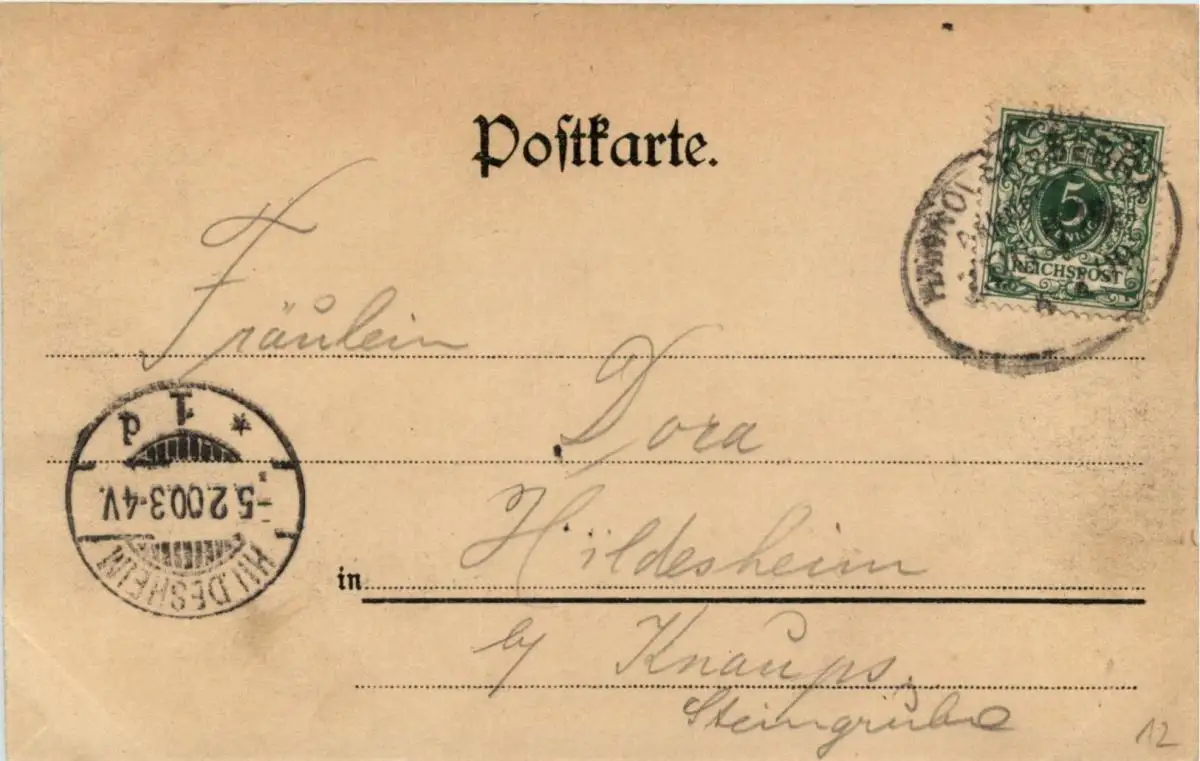 Postkarte.
5
REICHSPOST
Fräulein
Dora
in Hildesheim
by Knaups.
Steingrube
HILDESHEIM
-5.2.00.3-4V.
* 1 d
12